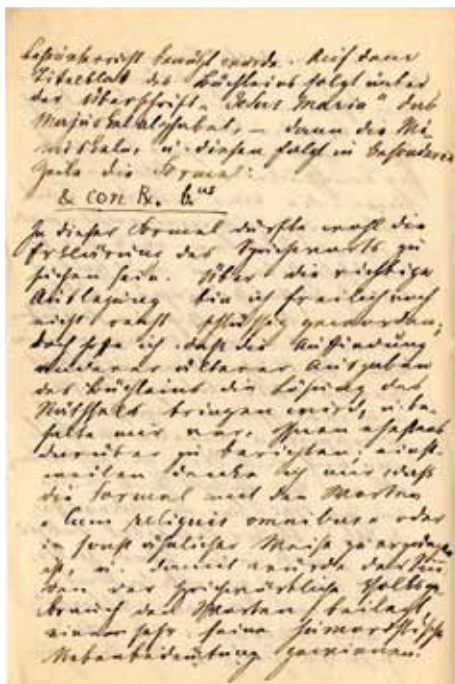 Leseunterricht benützt wurde. Auf dem
Titelblatt des Büchleins folgt unter
der Überschrift „Jesus Maria“ das
Majuskelalphabet, – dann die Mi-
nuskeln, u. diesen folgt in besonderer
Zeile die Formel:
& con R. bus
In dieser Formel dürfte wohl die
Erklärung des Sprichworts zu
suchen sein. Über die richtige
Auslegung bin ich freilich noch
nicht recht schlüssig geworden;
doch hoffe ich, daß die Auffindung
anderer älterer Ausgaben
des Büchleins die Lösung des
Räthsels bringen wird, u. be-
halte mir vor, Ihnen ehestens
darüber zu berichten; einst-
weilen denke ich mir, daß
die Formel mit den Worten
„Cum reliquis omnibus“ oder
in sonst ähnlicher Weise zu ergänzen
ist, u. damit würde der Sinn
den der sprichwörtliche Volksge-
brauch den Worten beilegt,
eine sehr feine humoristische
Nebenbedeutung gewinnen.